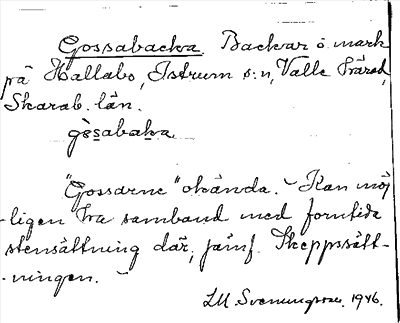 Gossabacka. Backar o. mark
på Hallabo, Istrum s:n, Valle härad,
Skarab. län.
gòsabaka
"Gossarne" okända. – Kan möj
-ligen ha samband med forntida
stensättning där, jämf. Skeppssätt-
-ningen. –
LM Svenungsson. 1946.